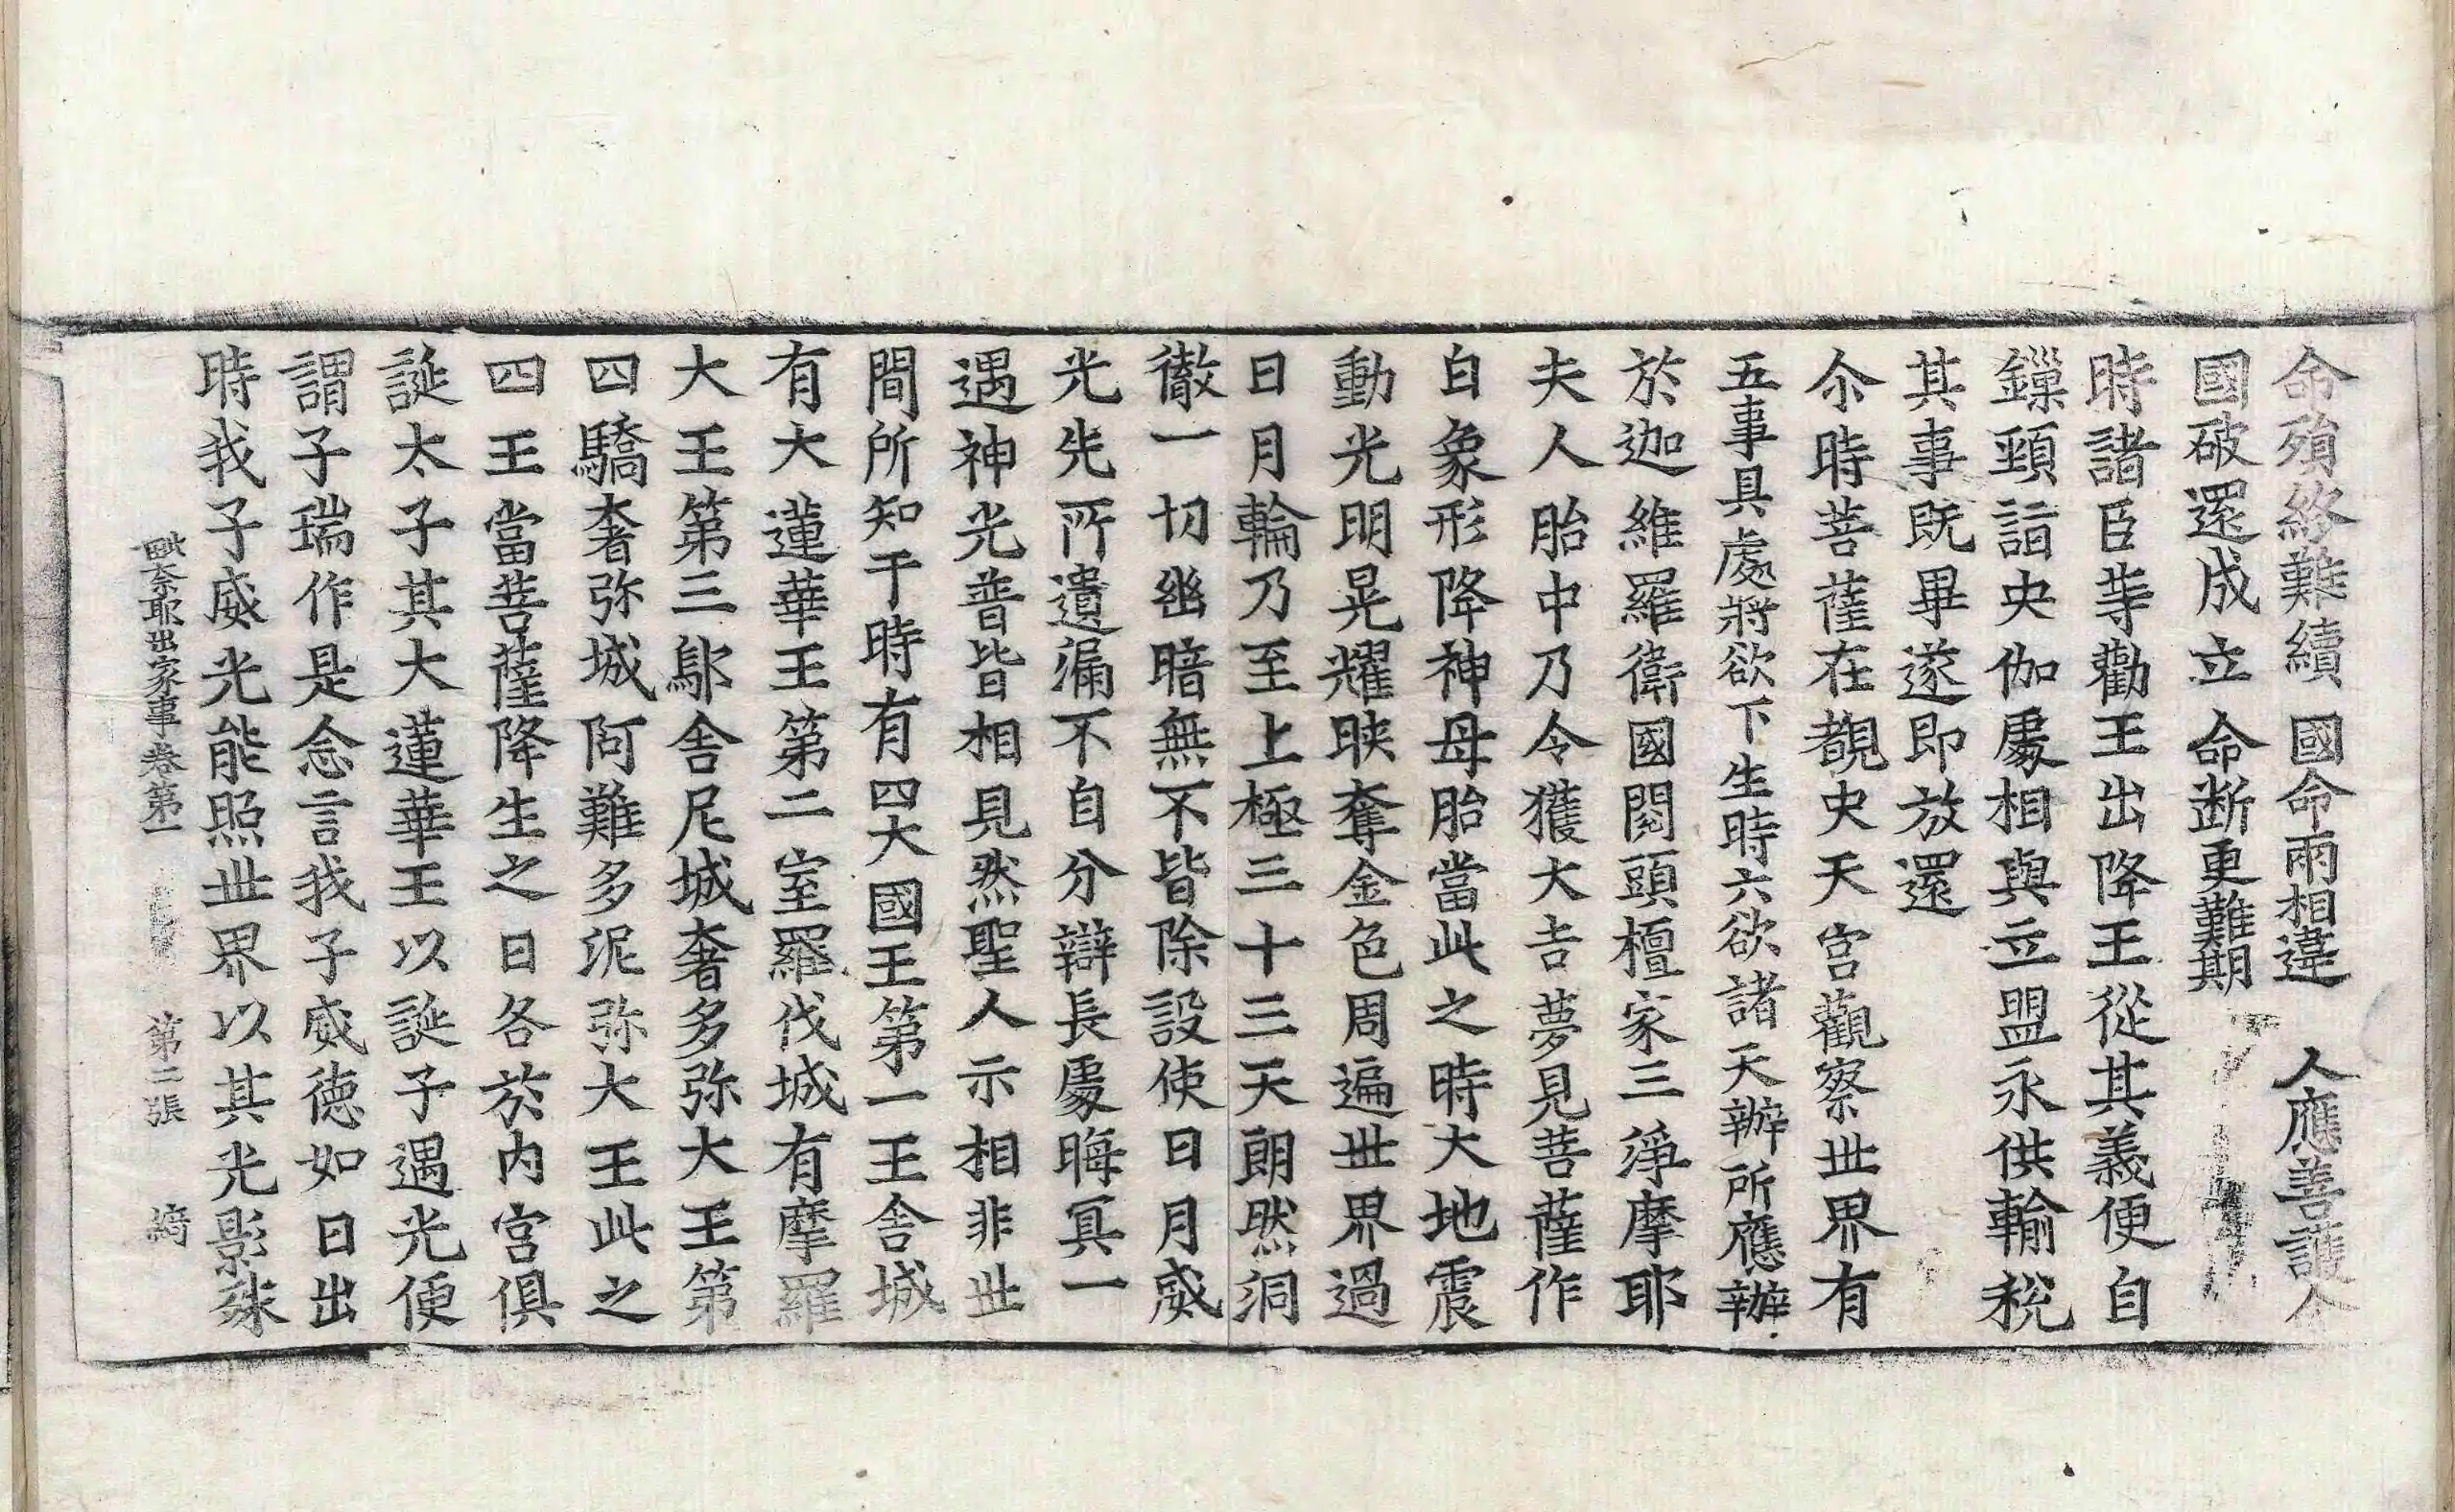 命殞終難續　國命兩相違　人應善護人
國破還成立　命断更難期
時諸臣䓁勸王出降王從其義便自
鏁頸詣央伽䖏相與立盟永供輸稅
其事既畢遂即放還
尒時菩薩在覩史天宮觀察世界有
五事具處將欲下生時六欲諸天辦所應辦
於迦維羅衛國閱頭檀家三淨摩耶
夫人胎中乃令獲大吉夢見菩薩作
白象形降神母胎當此之時大地震
動光明晃耀映奪金色周遍世界過
日月輪乃至上極三十三天朗然洞
徹一切幽暗無不皆除設使日月威
光先所遺漏不自分辯長䖏晦冥一
遇神光普皆相見然聖人示相非世
間所知于時有四大國王第一王舍城
有大蓮華王第二室羅伐城有摩羅
大王第三鄔舍尼城奢多弥大王第
四驕奢弥城阿難多泥弥大王此之
四王當菩薩降生之日各於内宮俱
誕太子其大蓮華王以誕子遇光便
謂子瑞作是念言我子威德如日出
時我子威光能照世界以其光影殊
毗奈耶出家事卷第一　第二張　綺